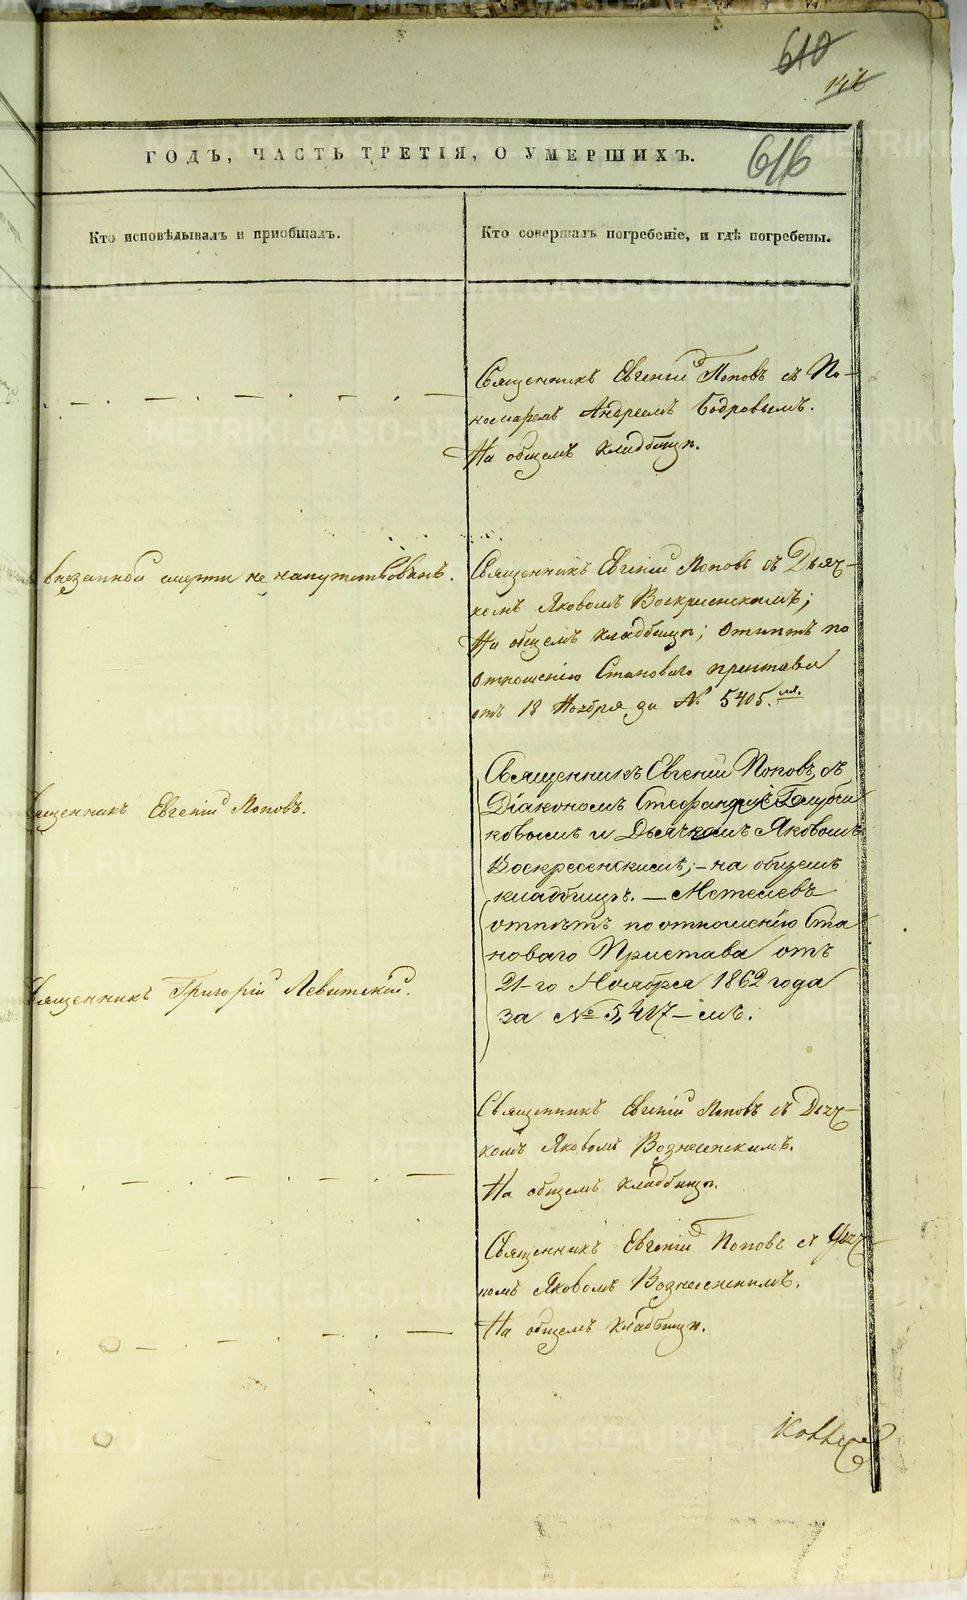 610
616
ГОДЪ, ЧАСТЬ ТРЕТІЯ, О УМЕРШИХЪ.
Кто исповѣдывалъ и приобщалъ.
Кто совершалъ погребеніе, и гдѣ погребены.
Священникъ Евгеній Поповъ съ По-
номаремъ Андреемъ Бодровымъ.
На общемъ кладбищѣ.
внезапной смерти не напутствованъ.
Священникъ Евгеній Поповъ съ Дьяч-
комъ Яковомъ Воскресенскимъ;
На общемъ кладбищѣ; Отпѣтъ по
отношенію Становаго пристава
отъ 18 Ноября за № 5405.мъ
Священникъ Евгеній Поповъ, съ
Діакономъ Стефаномъ Голуби
ковымъ и Дьячкомъ Яковомъ
Воскресенскимъ; – на общемъ
кладбищѣ. – Метелевъ
отпѣтъ по отношенію Ста
новаго Пристава отъ
21-го Ноября 1862 года
за № 5,417-мъ.
Священникъ Евгеній Поповъ.
Священникъ Григорій Левитский.
Священникъ Евгеній Поповъ съ Дьяч-
комъ Яковомъ Вознесенскимъ.
На общемъ кладбищѣ.
Священникъ Евгеній Поповъ съ Дьяч-
комъ Яковомъ Вознесенскимъ.
На общемъ кладбищѣ.
METRIKI.GASO-URAL.RU